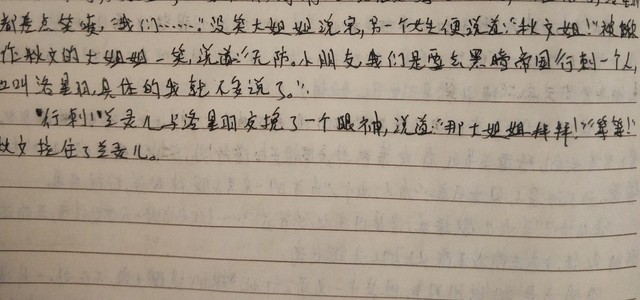 都差点笑喷,“我们……”没等大姐姐说完,另一个女生便说道:“秋文姐!”被唤
作秋文的大姐姐一笑,说道:“无防,小朋友,我们是要去黑暗帝国行刺一个人,
叫洛星羽,具体的我就不多说了。”
“行刺!”兰灵儿与洛星羽交换了一个眼神,说道:“那大姐姐拜拜!”“等等!”
秋文拦住了兰灵儿。